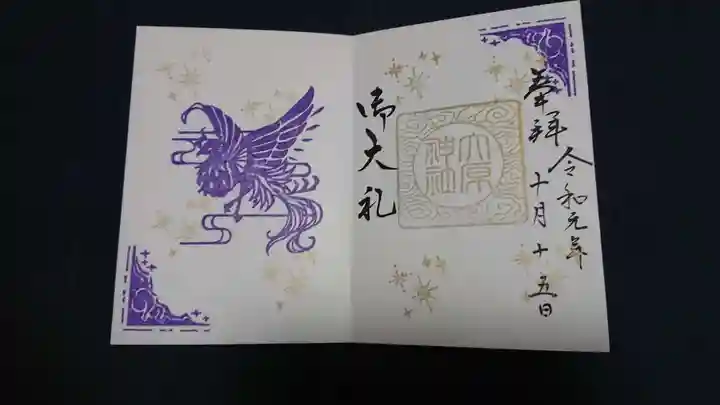 奉拝
令和元年
十月十五日
大原
神社
御大礼